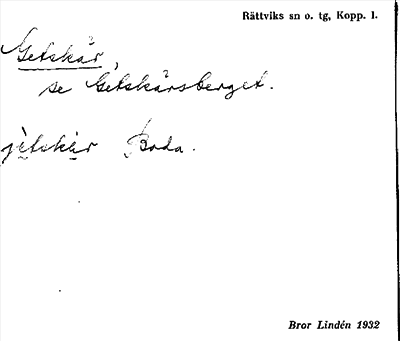 Rättviks sn o. tg, Kopp. l.
Getskär,
se Getskärsberget.
jètskèr Boda.
Bror Lindén 1932